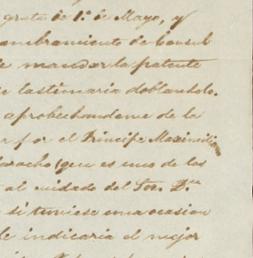 grata de 1º de Mayo, y
nombramiento de Consul
de mandar la patente
e lastimaria doblandola.
aprobechandome de la
r por el Principe Maximili
(que es uno de los
al cuidado del Sor. Dn
si tuviese una ocasion
le indicaria el mejor